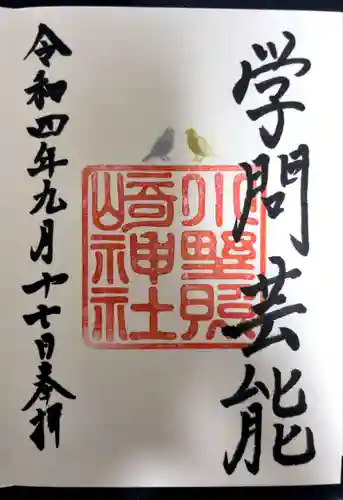 学問芸能
小野照
崎神社
令和四年九月十七日奉拝